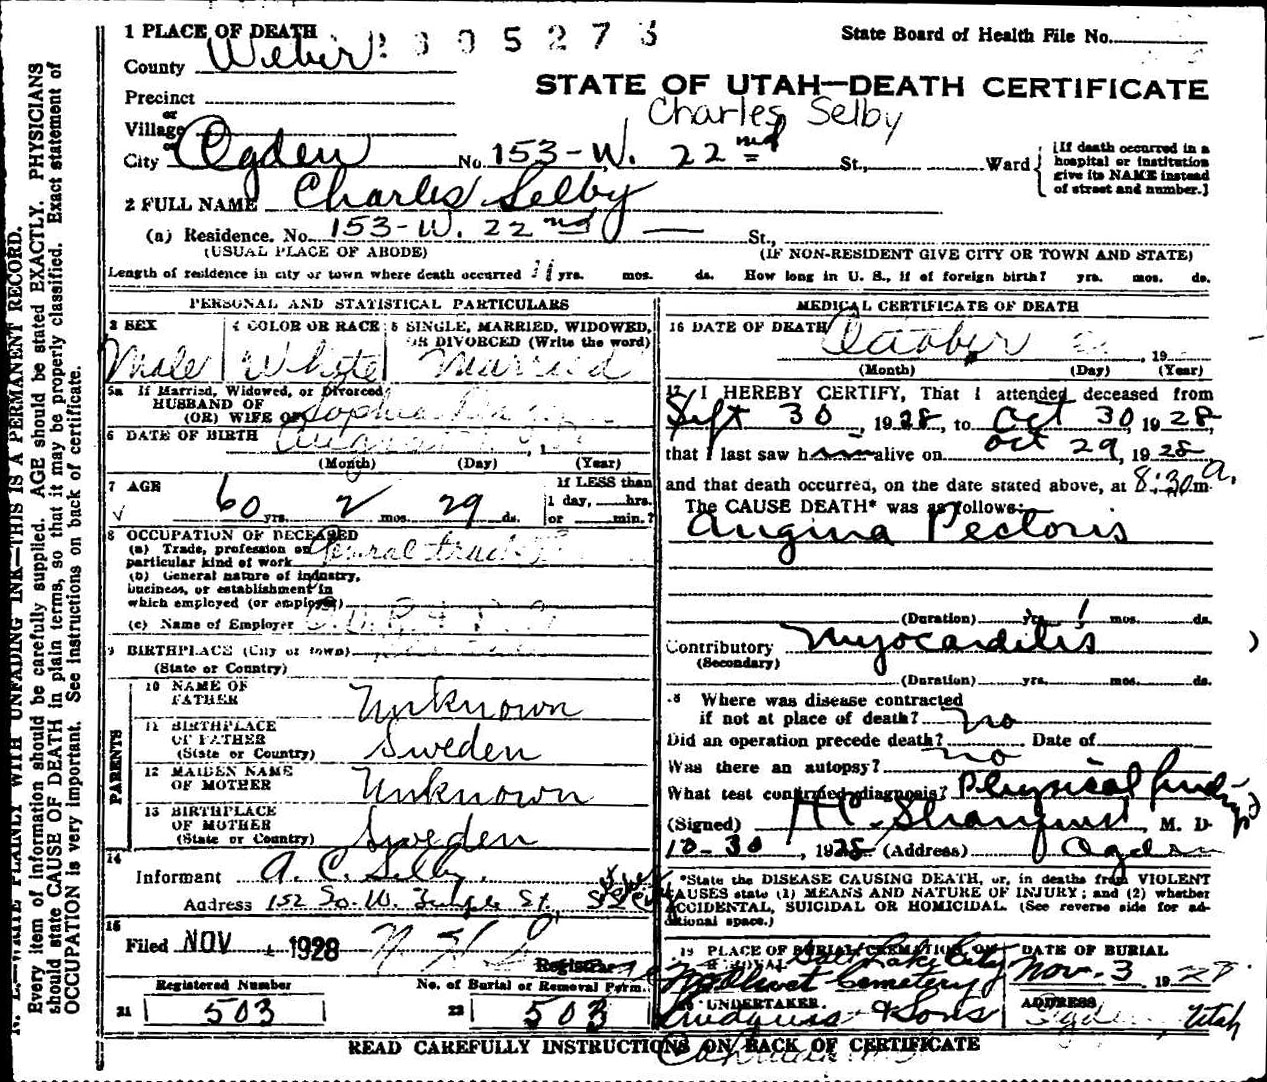 1 PLACE OF DEATH
2805273
State Board of Health File No.
County Weber
STATE OF UTAH—DEATH CERTIFICATE
Precinct
or
Village
or
Charles Selby
City Ogden No. 153-W. 22nd St., Ward
[If death occurred in a hospital or institution give its NAME instead of street and number.]
2 FULL NAME Charles Selby
(a) Residence. No. 153-W. 22nd — St.,
(USUAL PLACE OF ABODE) (IF NON-RESIDENT GIVE CITY OR TOWN AND STATE)
Length of residence in city or town where death occurred 11 yrs. mos. ds. How long in U. S., if of foreign birth? yrs. mos. ds.
PERSONAL AND STATISTICAL PARTICULARS
3 SEX
Male
4 COLOR OR RACE
White
5 SINGLE, MARRIED, WIDOWED, OR DIVORCED (Write the word)
Married
5a If Married, Widowed, or Divorced
HUSBAND OF
(OR) WIFE OF Sophia
6 DATE OF BIRTH August
(Month) (Day) (Year)
7 AGE
60 yrs. 2 mos. 29 ds.
If LESS than
1 day, hrs.
or min.?
8 OCCUPATION OF DECEASED
(a) Trade, profession or
particular kind of work General
(b) General nature of industry,
business, or establishment in
which employed (or employer)
(c) Name of Employer
9 BIRTHPLACE (City or town)
(State or Country)
PARENTS
10 NAME OF FATHER Unknown
11 BIRTHPLACE OF FATHER (State or Country) Sweden
12 MAIDEN NAME OF MOTHER Unknown
13 BIRTHPLACE OF MOTHER (State or Country) Sweden
14
Informant A. C. Selby.
Address 152 So. W. Temple St.
15
Filed NOV 1 1928
Registrar
Registered Number
21 503
No. of Burial or Removal Perm.
22 503
MEDICAL CERTIFICATE OF DEATH
16 DATE OF DEATH October , 19
(Month) (Day) (Year)
17 I HEREBY CERTIFY, That I attended deceased from
Sept 30, 1928, to Oct 30, 1928,
that I last saw him alive on Oct 29, 1928
and that death occurred, on the date stated above, at 8:30 a. m.
The CAUSE DEATH* was as follows:
Angina Pectoris
(Duration) yrs. 1 mos. ds.
Contributory Myocarditis
(Secondary)
(Duration) yrs. mos. ds.
18 Where was disease contracted
if not at place of death? no
Did an operation precede death? no Date of
Was there an autopsy?
What test confirmed diagnosis? Physical findings
(Signed) , M. D.
10-30, 1928 (Address) Ogden
*State the DISEASE CAUSING DEATH, or, in deaths from VIOLENT
CAUSES state (1) MEANS AND NATURE OF INJURY; and (2) whether
ACCIDENTAL, SUICIDAL OR HOMICIDAL. (See reverse side for additional space.)
19 PLACE OF BURIAL CREMATION OR REMOVAL Salt Lake City
Cemetery
DATE OF BURIAL
Nov. 3 1928.
20 UNDERTAKER
Lindquist & Sons
ADDRESS
Ogden, Utah
READ CAREFULLY INSTRUCTIONS ON BACK OF CERTIFICATE
N. B.—WRITE PLAINLY WITH UNFADING INK—THIS IS A PERMANENT RECORD.
Every item of information should be carefully supplied. AGE should be stated EXACTLY. PHYSICIANS
should state CAUSE OF DEATH in plain terms, so that it may be properly classified. Exact statement of
OCCUPATION is very important. See instructions on back of certificate.